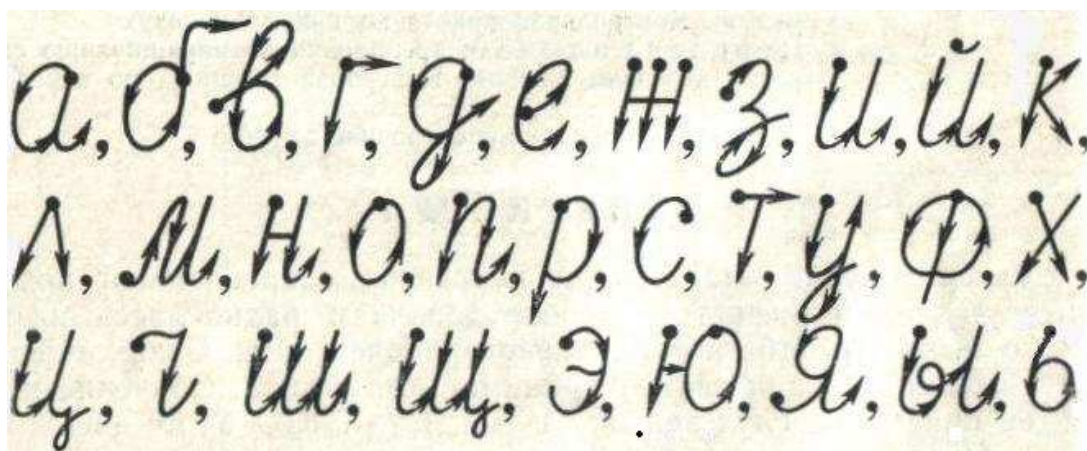 а, б, в, г, д, е, ж, з, и, й, к,
л, м, н, о, п, р, с, т, у, ф, х,
ц, ч, ш, щ, э, ю, я, ы, ь